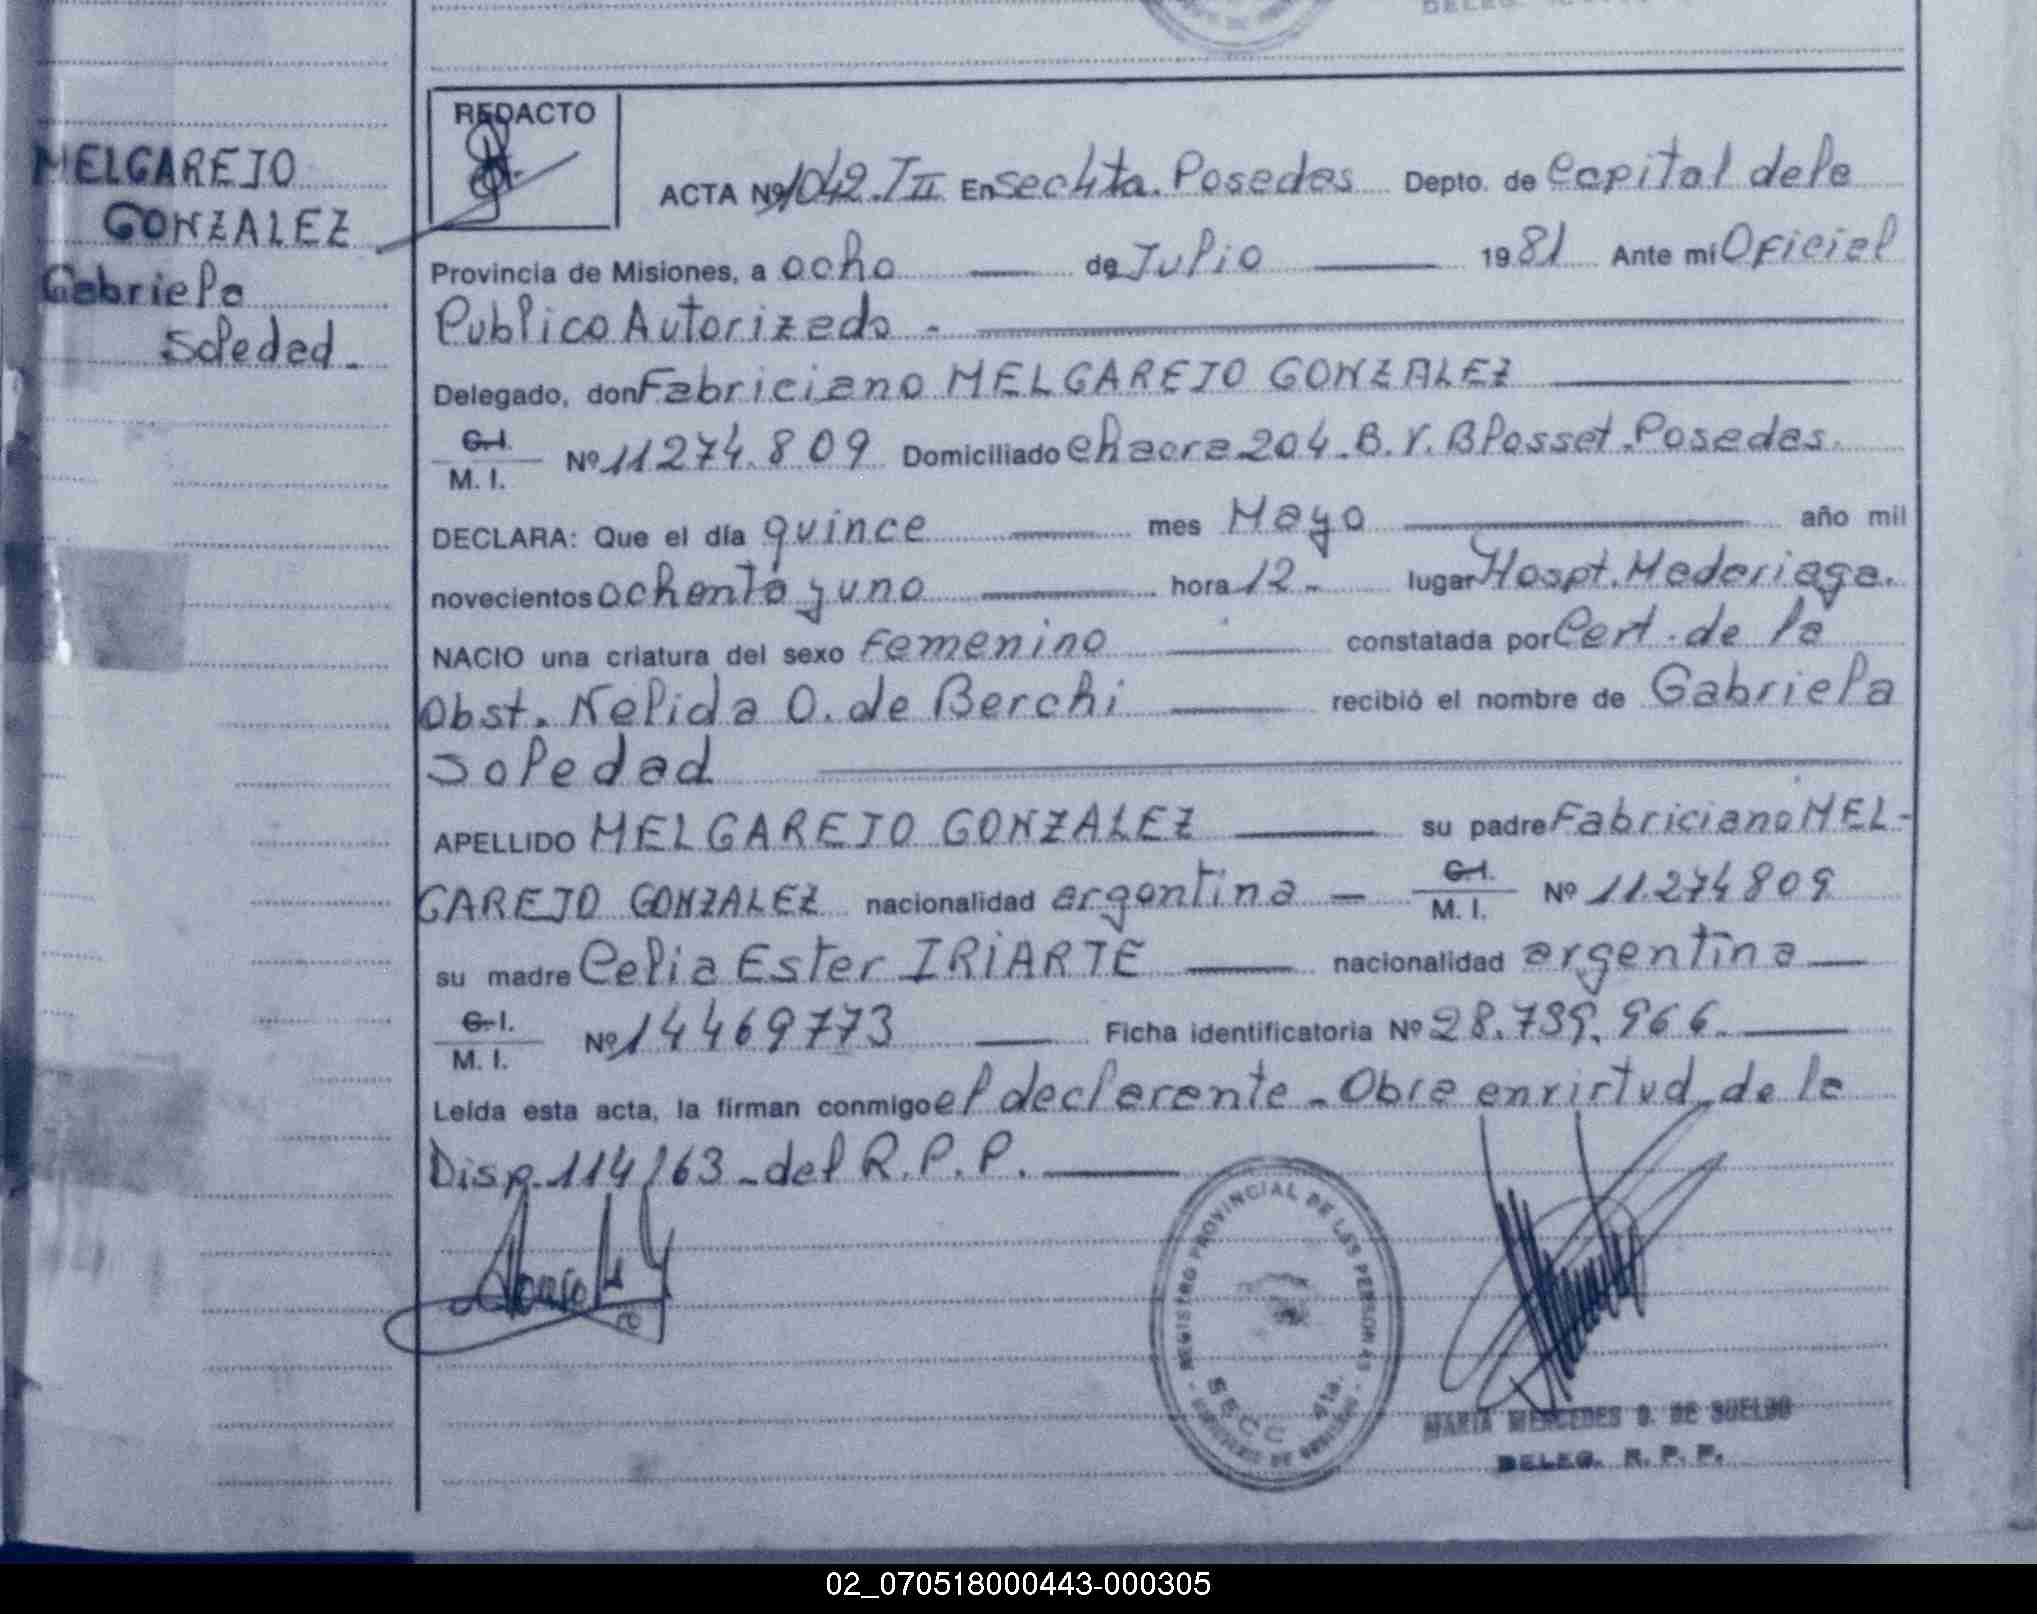 MELGAREJO
GONZALEZ
Gabriela
Soledad-
REDACTO
ACTA Nº 1042.TII En Secc 4ta. Posadas Depto. de Capital de la
Provincia de Misiones, a ocho de Julio 1981 Ante mi Oficial
Publico Autorizado -
Delegado, don Fabriciano MELGAREJO GONZALEZ
C.I.
M. I. Nº 11274.809 Domiciliado Chacra 204.B.V.Blosset.Posadas.
DECLARA: Que el día quince mes Mayo año mil
novecientos ochenta y uno hora 12- lugar Hospt. Madariaga.
NACIO una criatura del sexo femenino constatada por Cert. de la
Obst. Nelida O. de Berchi recibió el nombre de Gabriela
Soledad
APELLIDO MELGAREJO GONZALEZ su padre Fabriciano MEL-
GAREJO GONZALEZ nacionalidad argentina - C.I.
M. I. Nº 11.274809
su madre Celia Ester IRIARTE nacionalidad argentina
C.I.
M. I. Nº 14469773 Ficha identificatoria Nº 28.739.966.
Leída esta acta, la firman conmigo el declarante - Obra en virtud de la
Disp.114/63-del R.P.P.
REGISTRO PROVINCIAL DE LAS PERSONAS
SECC 4ta.
MARIA MERCEDES D. DE SUELDO
DELEG. R. P. P.
02_070518000443-000305